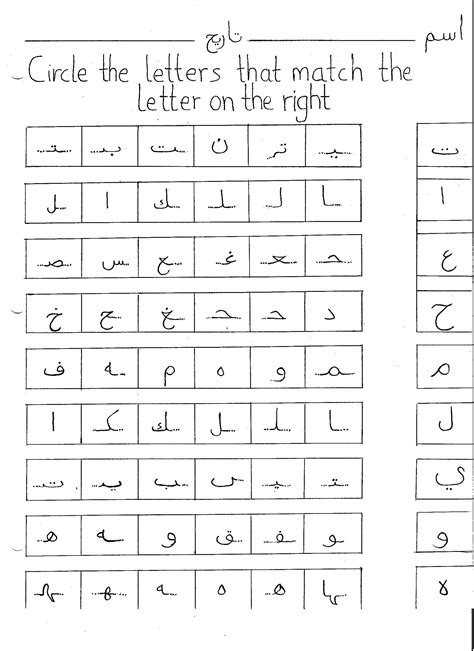 اسم تاريخ
Circle the letters that match the
letter on the right
ت يـ تر ن ـت بـ ـتـ
ا ـا ـل ـلـ ـك ا ـل
ع حـ ـعـ غـ ـع ـس ـصـ
ح د حـ ـحـ ـغ ـج خ
م ـمـ و ه م ـه ف
ل ـا ـلـ ـل ـك كـ ا
ي ـتـ ـيـ ـس ـب ـيـ ـت
و ـو ـفـ ـق و ـه هـ
ه ـها هـ ه ـه ـهـ ـهـ